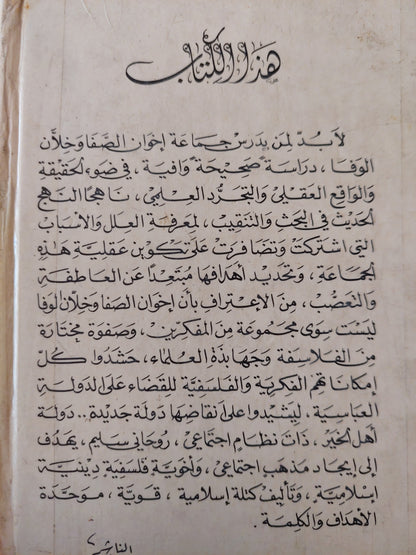 هذا الكتاب
لا بد لمن يدرس جماعة إخوان الصفا وخلان
الوفا، دراسة صحيحة وافية، في ضوء الحقيقة
والواقع العقلي والتجرد العلمي، ناهجا النهج
الحديث في البحث والتنقيب، لمعرفة العلل والأسباب
التي اشتركت وتضافرت على تكوين عقلية هذه
الجماعة، وتحديد أهدافها مبتعدا عن العاطفة
والتعصب، من الاعتراف بأن إخوان الصفا وخلان الوفا
ليست سوى مجموعة من المفكرين، وصفوة مختارة
من الفلاسفة وجهابذة العلماء، حشدوا كل
إمكاناتهم الفكرية والفلسفية للقضاء على الدولة
العباسية. ليشيدوا على أنقاضها دولة جديدة.. دولة
أهل الخير، ذات نظام اجتماعي، روحاني سليم، يهدف
إلى إيجاد مذهب اجتماعي، وأخوية فلسفية دينية
إسلامية، وتأليف كتلة إسلامية، قوية، موحدة
الأهداف والكلمة.
الناشر